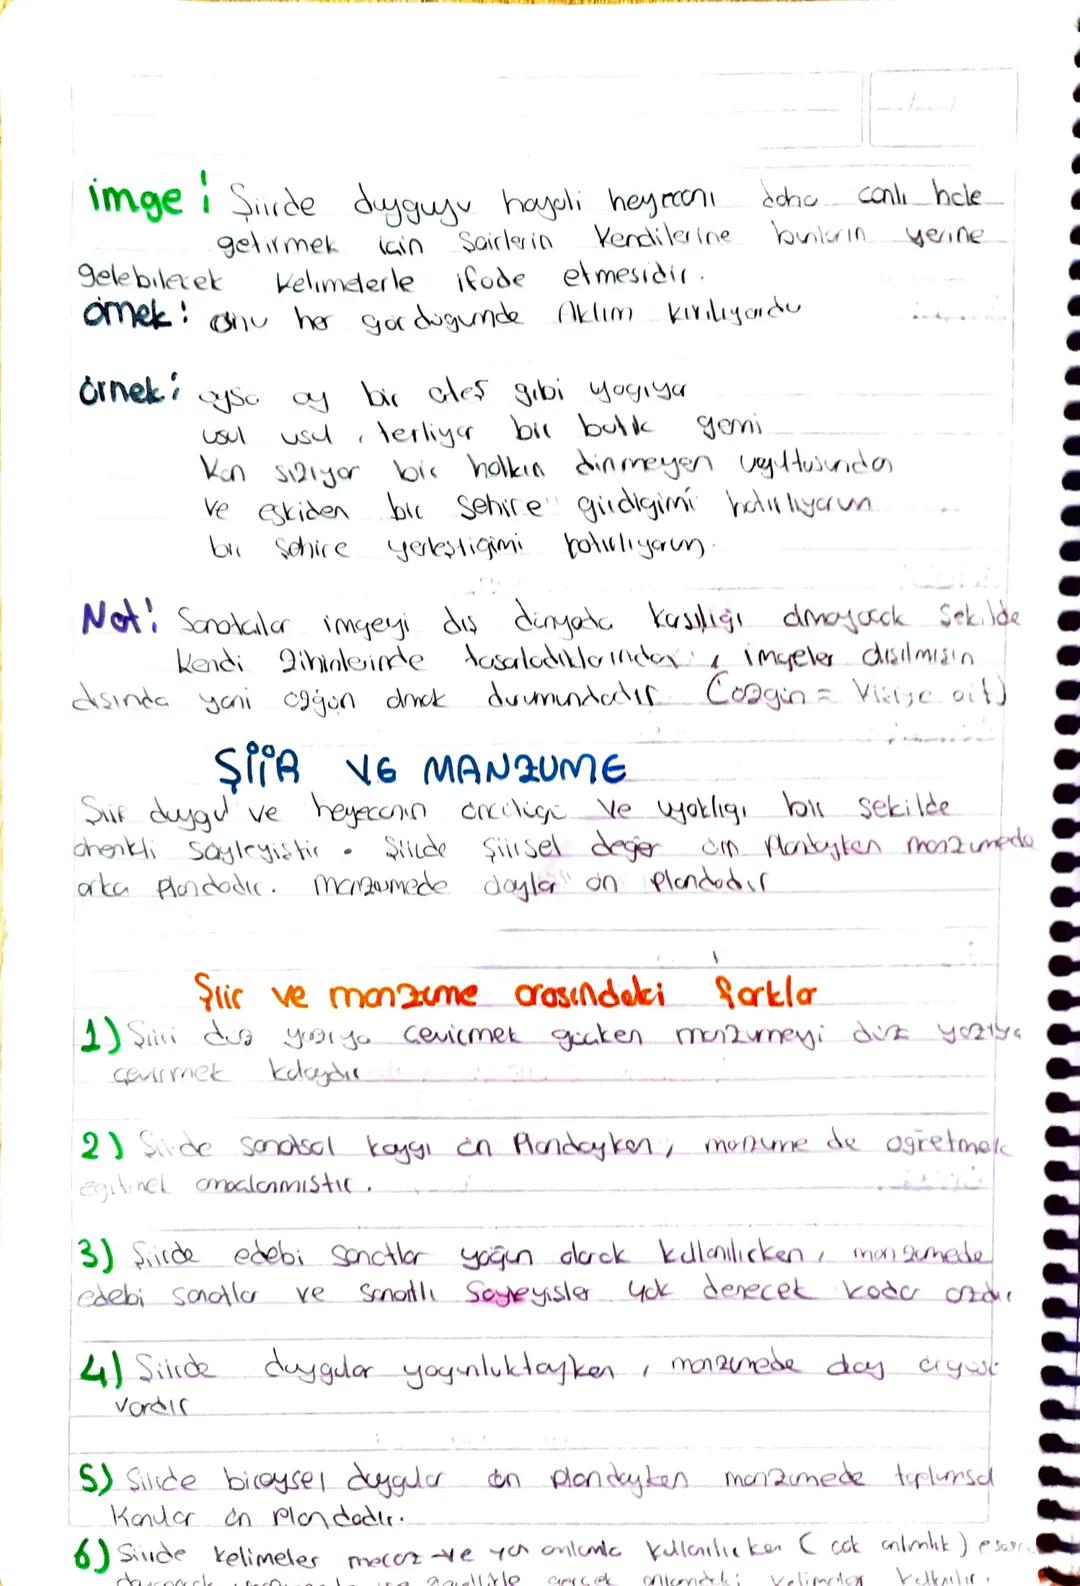 imge : Şiirde duyguyu hayali heyecanı daha canlı hale
getirmek için Şairlerin kendilerine bunların yerine
gelebilecek kelimelerle ifade etmesidir.
örnek : onu her gördügümde Aklım kırılıyordu
örnek : oysa ay bir ateş gibi yağıyor
usul usul, terliyor bir batık gemi
Kan sızıyor bir halkın dinmeyen uğultusundan
ve eskiden bir şehire girdiğimi hatırlıyorum
bir şehire yerleştigimi hatırlıyorum.
Not : Sanatcılar imgeyi dış dünyada karşılığı olmayacak şekilde
kendi zihinlerinde tasarladıklarından, imgeler alışılmışın
dışında yani özgün olmak durumundadır (özgün = kişiye ait)
ŞİİR VE MANZUME
Şiir duygu ve heyecanın ve bir şekilde
ahenkli söyleyiştir. Şiirde şiirsel değer ön plandayken manzumede
arka plandadır. manzumede olaylar ön plandadır
Şiir ve manzume arasındaki farklar
1) Şiiri düz yazıya çevirmek güçken manzumeyi düz yazıya
çevirmek kolaydır
2) Şiirde sanatsal kaygı ön plandayken, manzume de ögretmek
egitmek amaclanmıstır.
3) Şiirde edebi sanatlar yoğun olarak kullanılırken, manzumede
edebi sanatlar ve sanatlı Söyleyişler yok denecek kadar azdır
4) Şiirde duygular yoğunluktayken, manzumede olay örgüsü
vardır
5) Şiirde bireysel duygular ön plandayken manzumede toplumsal
Konular ön plandadır.
6) Şiirde kelimeler mecaz ve yan anlamla kullanılırken ( çok anlamlılık )
genellikle gerçek anlamdaki kelimeler kullanılır.